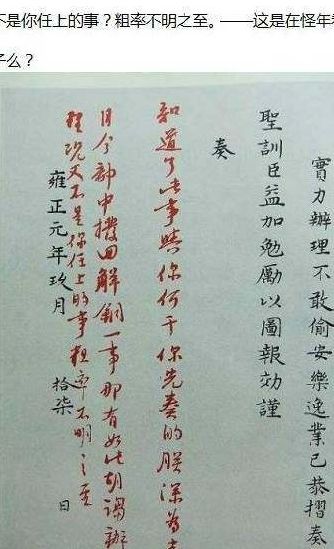 不是你任上的事？粗率不明之至。——这是在怪年
子么？
實力辦理不敢偷安樂逸業已恭摺奏
聖訓臣益加勉勵以圖報効謹
奏
知道了此事與你何干你先奏的朕深為
目今部中撥回解銅一事那有如此胡謅辦
理況又不是你任上的事粗率不明之至
雍正元年玖月 拾柒 日